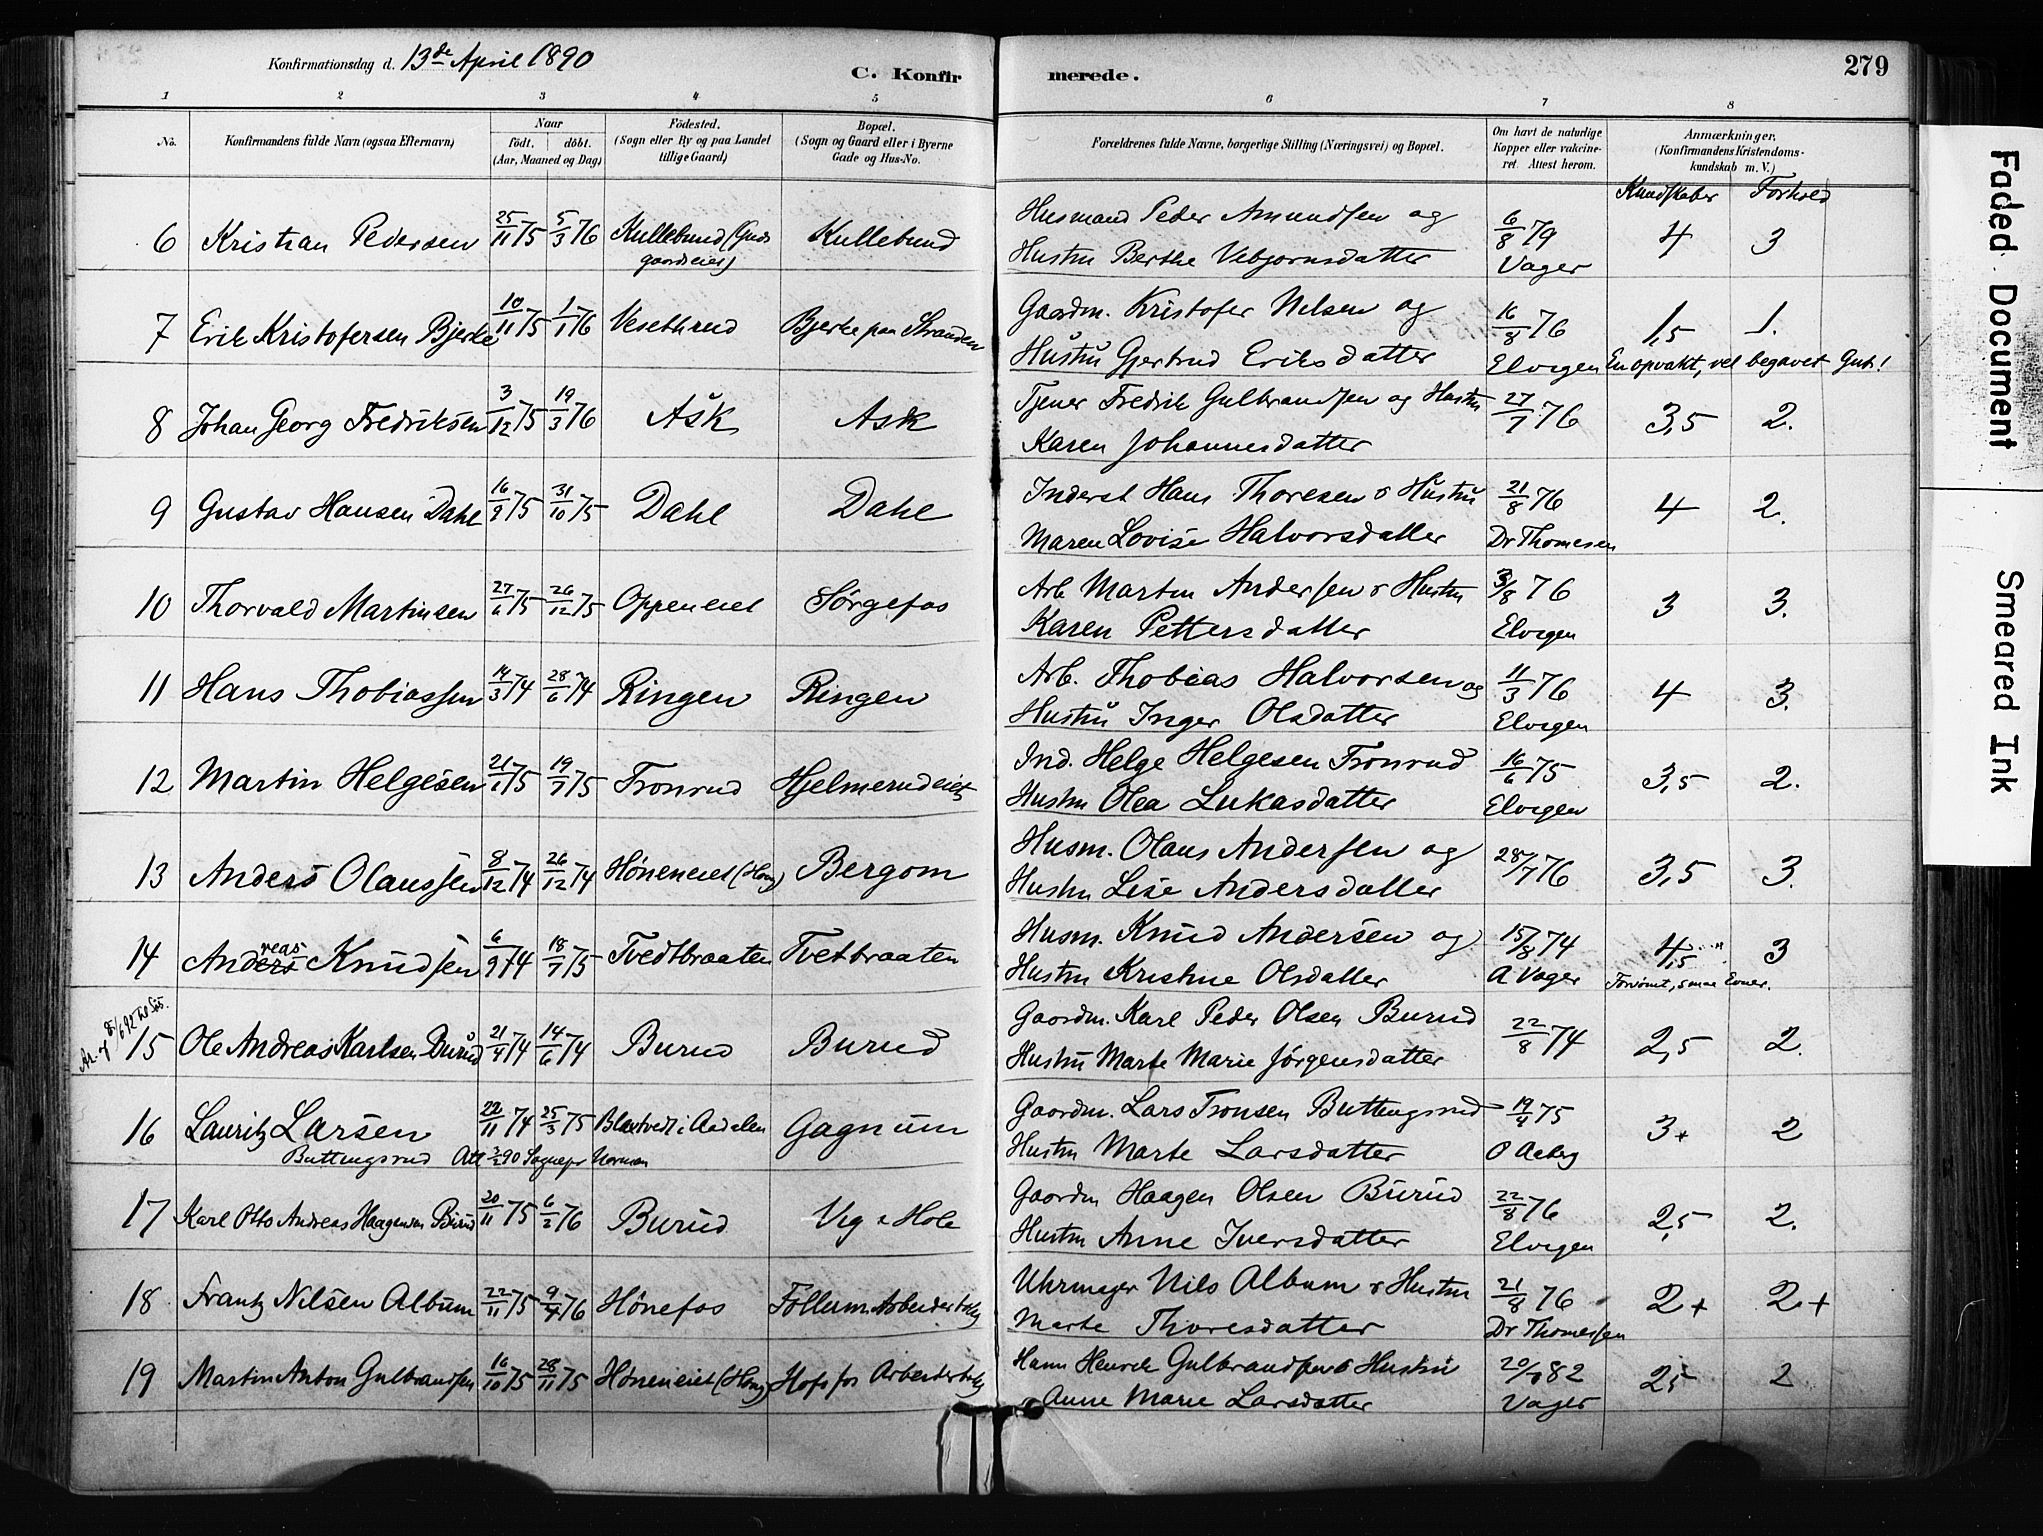 Konfirmationsdag d. 13de April 1890
C. Konfirmerede. 279
1 2 3 4 5 6 7 8
No. Konfirmandens fulde Navn (ogsaa Efternavn) Naar født. døbt. (Aar, Maaned og Dag) Födested. (Sogn eller By og paa Landet tillige Gaard) Bopæl. (Sogn og Gaard eller i Byerne Gade og Hus-No. Forældrenes fulde Navne, borgerlige Stilling (Næringsvei) og Bopæl. Om havt de naturlige Kopper eller vakcineret. Attest herom. Anmærkninger. (Konfirmandens Kristendomskundskab m. V.)
Kundskaber Forhold
6 Kristian Pedersen 25/11 75 5/3 76 Kullebund Kullebund Husmand Peder Amundsen og 6/8 79 4 3
Hustru Berthe Vebjørnsdatter Vager
7 Erik Kristofersen Bjerke 10/11 75 1/1 76 Vesethrud Bjerke paa Stranden Gaardm. Kristofer Nilsen og 16/8 76 1,5 1.
Hustru Gjertrud Eriksdatter Elvigen En opvakt, vel begavet Gut!
8 Johan Georg Fredriksen 3/12 75 19/3 76 Ask Ask Tjener Fredrik Gulbrandsen og Hustru 27/7 76 3,5 2.
Karen Johannesdatter
9 Gustav Hansen Dahl 16/9 75 31/10 75 Dahl Dahl Inderst Hans Thoresen & Hustru 21/8 76 4 2.
Maren Lovise Halvorsdatter Dr Thomesen
10 Thorvald Martinsen 27/6 75 26/12 75 Oppeneiet Sørgefos Arb Martin Andersen & Hustru 3/8 76 3 3.
Karen Pettersdatter Elvigen
11 Hans Thobiassen 14/3 74 28/6 74 Ringen Ringen Arb. Thobias Halvorsen og 11/3 76 4 3.
Hustru Inger Olsdatter Elvigen
12 Martin Helgesen 21/1 75 19/7 75 Tronrud Hjelmerudeiet Ind. Helge Helgesen Tronrud 16/6 75 3,5 2.
Hustru Olea Lukasdatter Elvigen
13 Anders Olaussen 8/12 74 26/12 74 Høneneiet (Hong) Bergom Husm. Olaus Andersen og 28/7 76 3,5 3.
Hustru Lise Andersdatter
14 Andreas Knudsen 6/9 74 18/7 75 Tvedtbraaten Tvetbraaten Husm. Knud Andersen og 15/8 74 4,5 3
Hustru Kristine Olsdatter A Vager Forsømt, smaa Evner.
15 Ole Andreas Karlsen Burud 21/4 74 14/6 74 Burud Burud Gaardm. Karl Peder Olsen Burud 22/8 74 2,5 2.
Hustru Marte Marie Jørgensdatter
16 Lauritz Larsen 22/11 74 25/3 75 Blaxtvedt i Aadalen Gagnum Gaardm. Lars Tronsen Buttingsrud 19/4 75 3+ 2
Buttingsrud Att 3/2 90 Sognepr Norman Hustru Marte Larsdatter O Aaberg
17 Karl Otto Andreas Haagensen Burud 20/11 75 6/2 76 Burud Vig i Hole Gaardm Haagen Olsen Burud 22/8 76 2,5 2.
Hustru Anne Iversdatter Elvigen
18 Frantz Nilsen Album 22/11 75 9/4 76 Hønefos Follum Arbeiderbolig Uhrmager Nils Album & Hustru 21/8 76 2+ 2+
Marte Thoresdatter Dr Thomesen
19 Martin Anton Gulbrandsen 16/10 75 28/11 75 Høneneiet (Hong) Hofsfos Arbeiderbolig Hans Henrik Gulbrandsen & Hustru 20/8 82 2,5 2
Anne Marie Larsdatter Vager
Faded Document
Smeared Ink